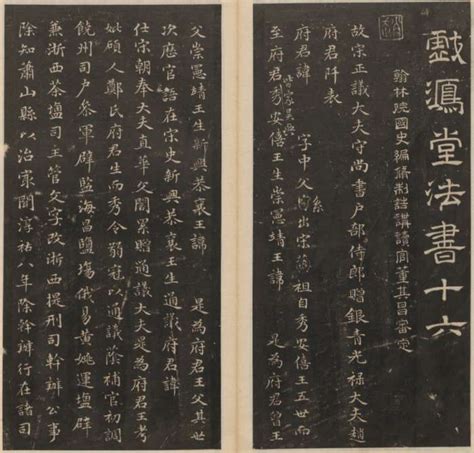 戲鴻堂法書十六
翰林院國史編修制誥講讀官董其昌審定
故宋正議大夫守尚書戶部侍郎贈銀青光祿大夫趙
府君阡表
府君諱 字中父 出宋 藝祖自秀安僖王五世而
至府君秀安僖王生崇憲靖王諱 是為府君曾王
父崇憲靖王生新興恭襄王諱 是為府君王父其世
次歷官語在宋史新興恭襄王生通議府君諱
仕宋朝奉大夫直華文閣累贈通議大夫是為府君王考
妣碩人鄭氏府君生而秀令弱冠以通議蔭補官初調
饒州司戶參軍辟監海昌鹽場俄易黃姚運鹽辟
兼浙西茶鹽司主管文字改浙西提刑司幹辦公事
除知蕭山縣以治寂聞淳祐八年除幹辦行在諸司